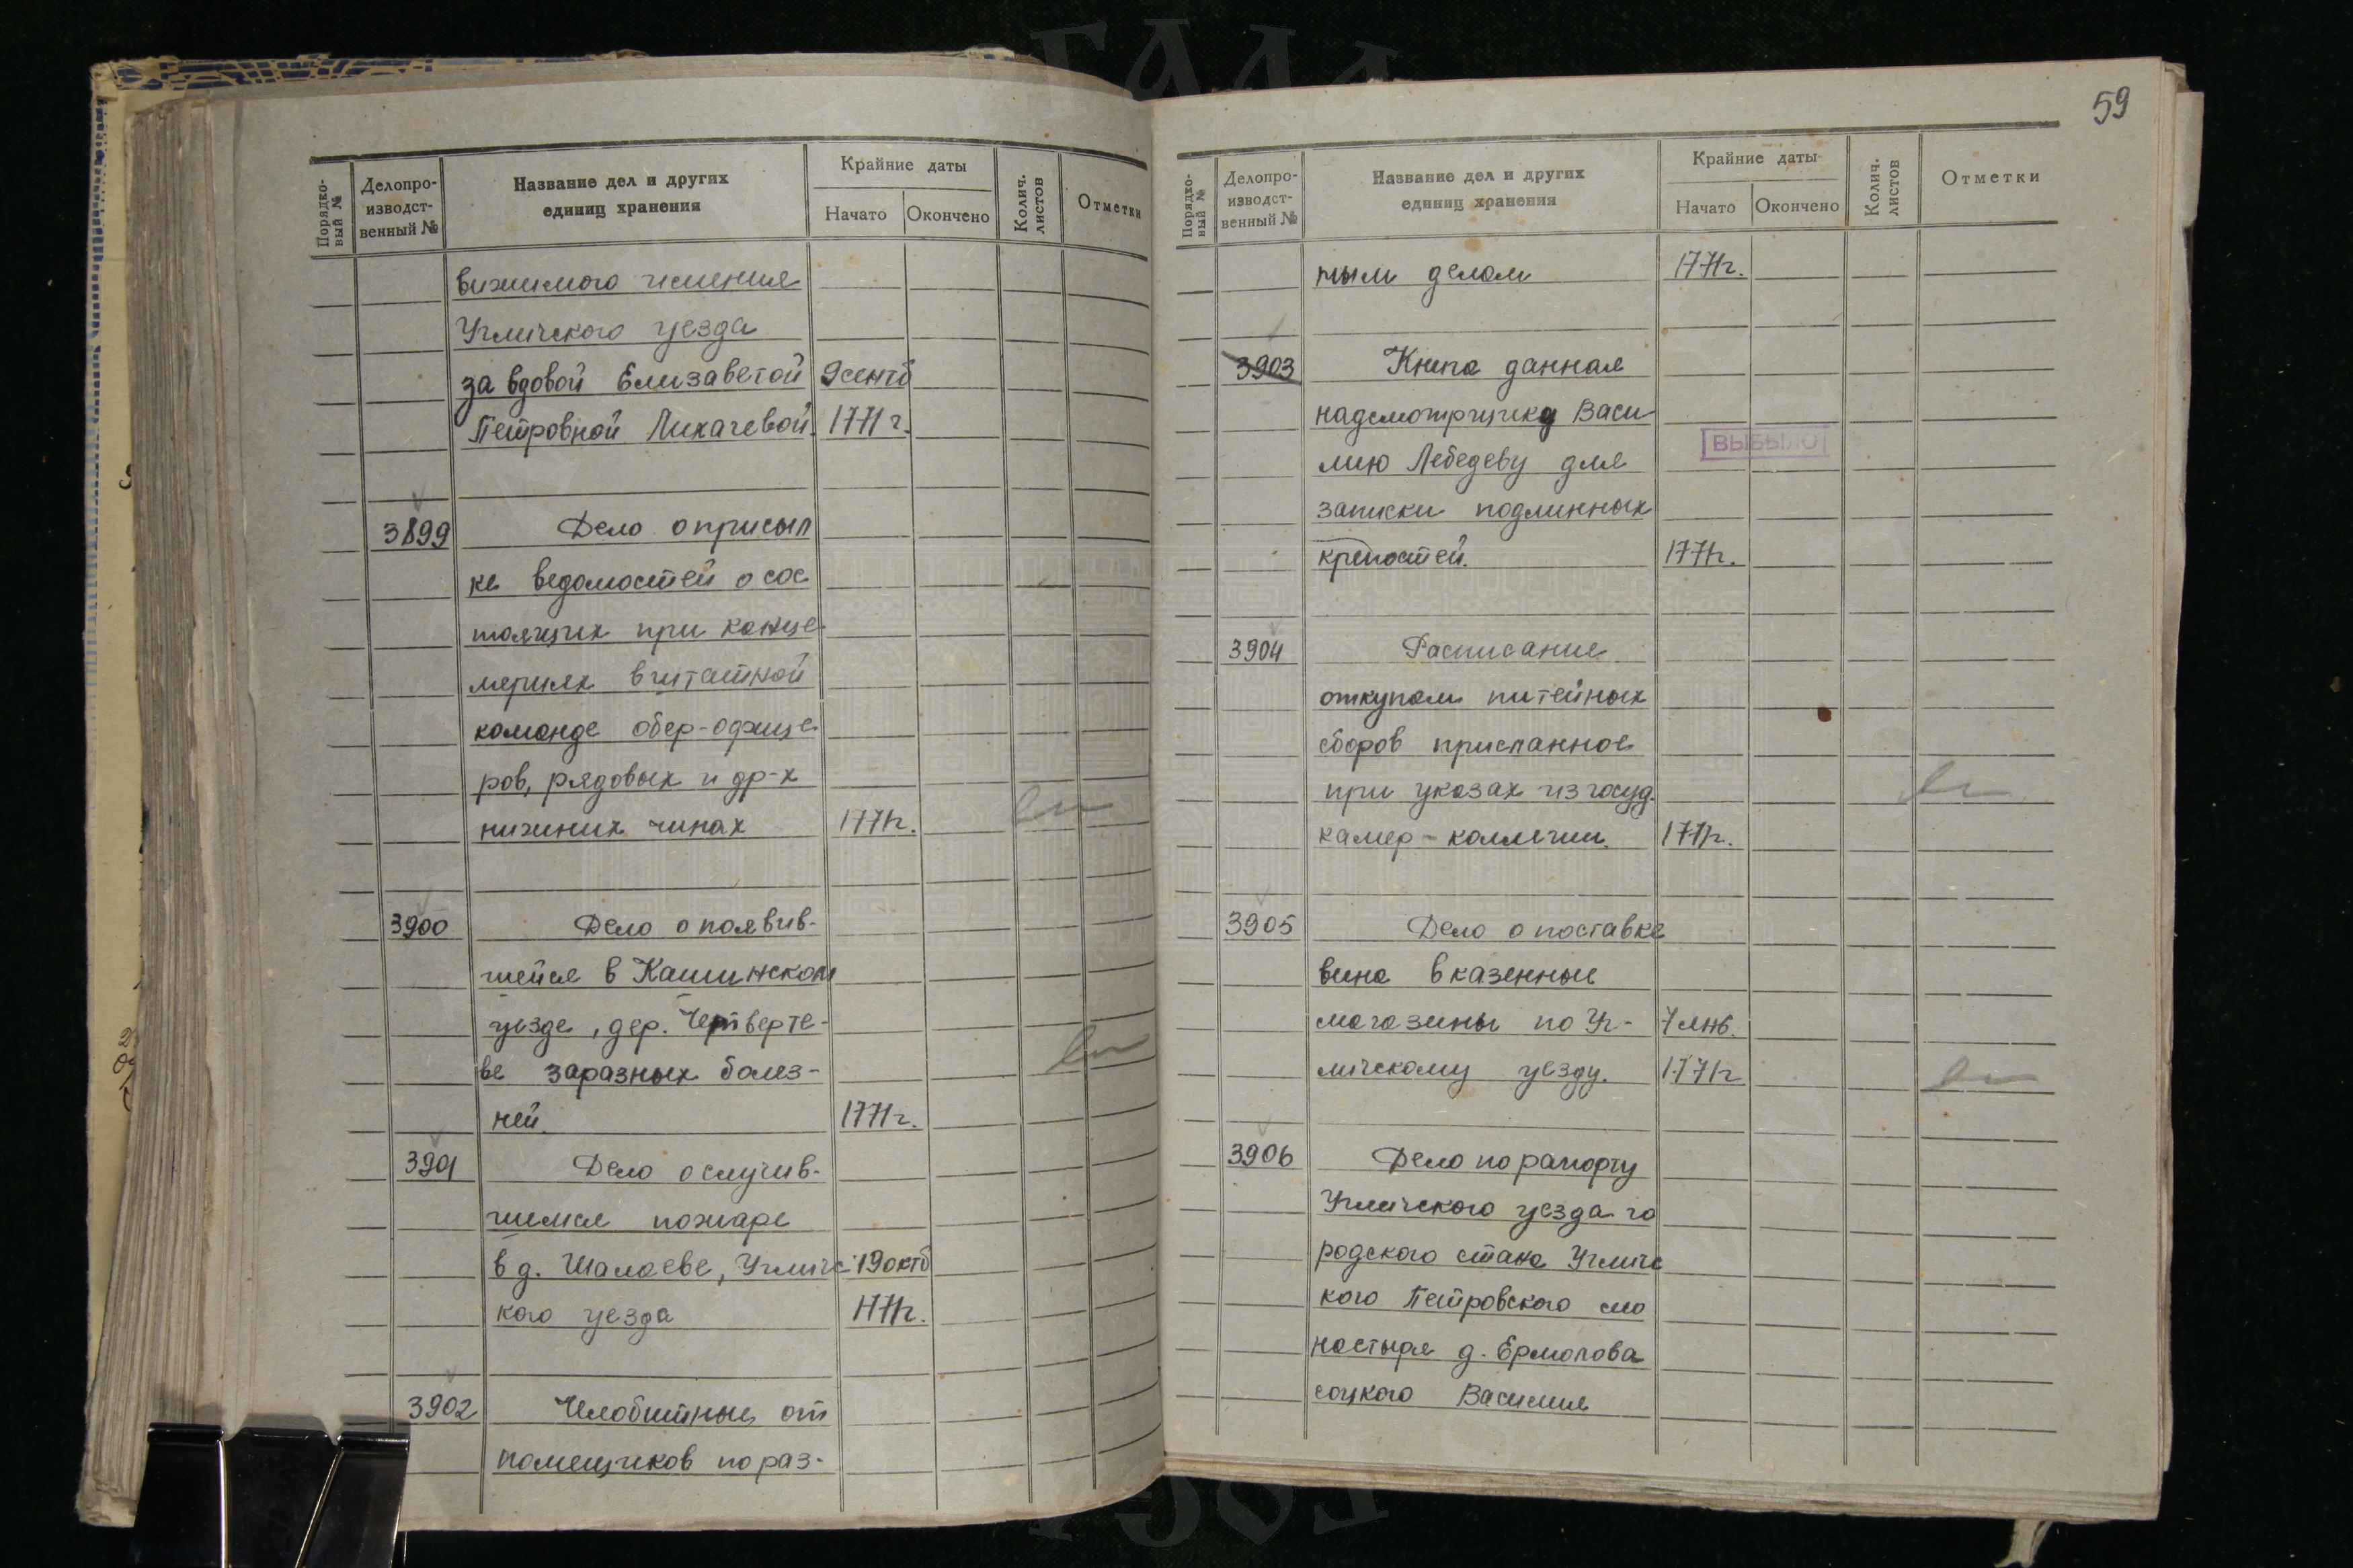 Порядко-
вый №
Делопро-
изводст-
венный №
Название дел и других
единиц хранения
Крайние даты
Начато
Окончено
Колич.
листов
Отметки
вижимого имения
Угличского уезда
за вдовой Елизаветой 9 сентб
Петровной Лихачевой. 1771 г.
3899 Дело о присыл
ке ведомостей о сос
тоящих при канце
ляриях в штатной
команде обер-офице
ров, рядовых и др-х
нижних чинах 1771г.
3900 Дело о появив-
шейся в Кашинском
уезде, дер. Четверте-
ве заразных болез-
ней. 1771г.
3901 Дело о случив-
шемся пожаре
в д. Шалаеве, Угличс 19 октб
кого уезда 1771г.
3902 Челобитные от
помещиков по раз-
59
Порядко-
вый №
Делопро-
изводст-
венный №
Название дел и других
единиц хранения
Крайние даты
Начато
Окончено
Колич.
листов
Отметки
ным делам 1771г.
3903 Книга данная
надсмотрщику Васи
лию Лебедеву для
ВЫБЫЛО
записки подлинных
крепостей. 1771г.
3904 Расписание
откупам питейных
сборов присланное
при указах из госуд.
камер-коллегии. 1771г.
3905 Дело о поставке
вина в казенные
магазины по Уг- 7 янв.
личскому уезду. 1771г
3906 Дело по рапорту
Угличского уезда го
родского стана Угличс
кого Петровского мо
настыря д. Ермолова
соцкого Василия